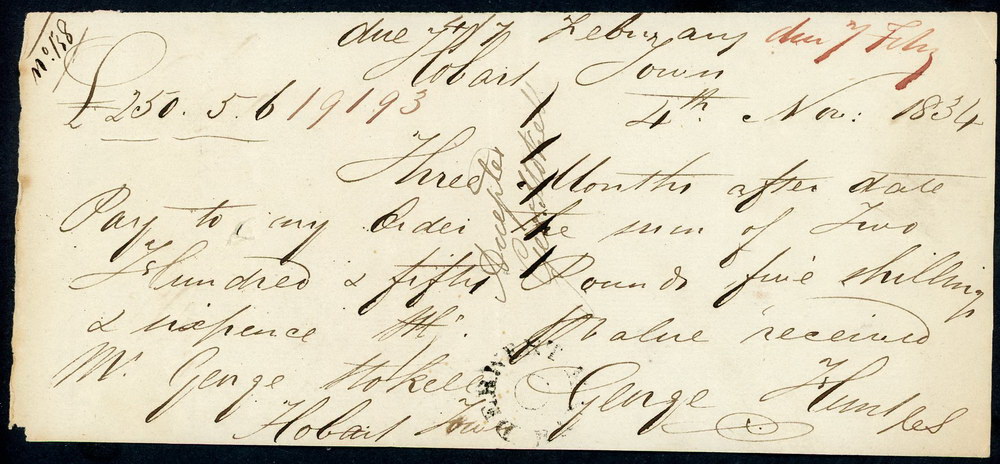 No. 138
due 4/7 February due 7 Feby
Hobart Town
£ 250. 5. 6 19193 4th Nov: 1834
Three Months after date
Pay to my Order the sum of Two
Hundred & fifty Pounds five shillings
& sixpence Stg. Value received
Mr. George Stokell George Hunt
Hobart Town
Accepted
George Stokell
DERWENT